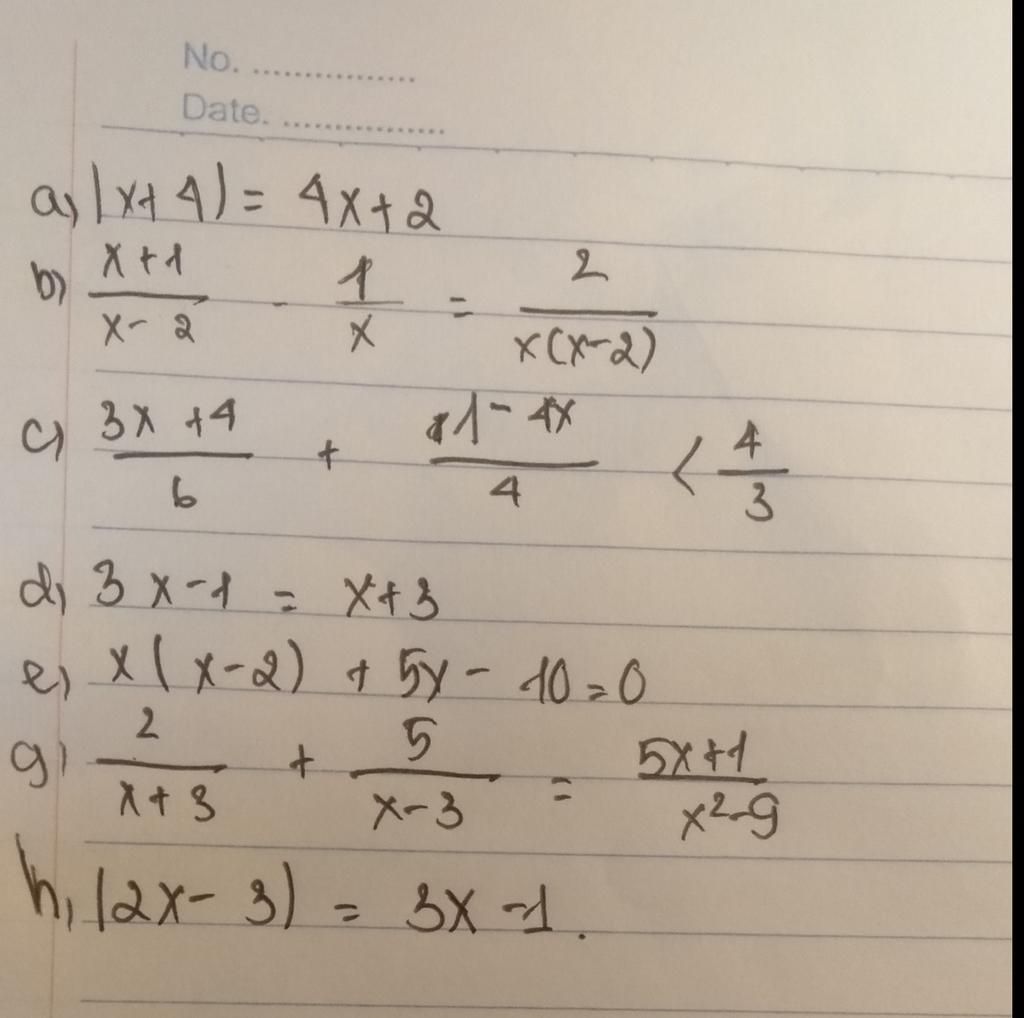 No. ................
Date. ................
a) |x+4| = 4x+2
b) \frac{x+1}{x-2} - \frac{1}{x} = \frac{2}{x(x-2)}
c) \frac{3x+4}{6} + \frac{1-4x}{4} < \frac{4}{3}
d) 3x-1 = x+3
e) x(x-2) + 5x - 10 = 0
g) \frac{2}{x+3} + \frac{5}{x-3} = \frac{5x+1}{x^2-9}
h, |2x-3| = 3x-1.